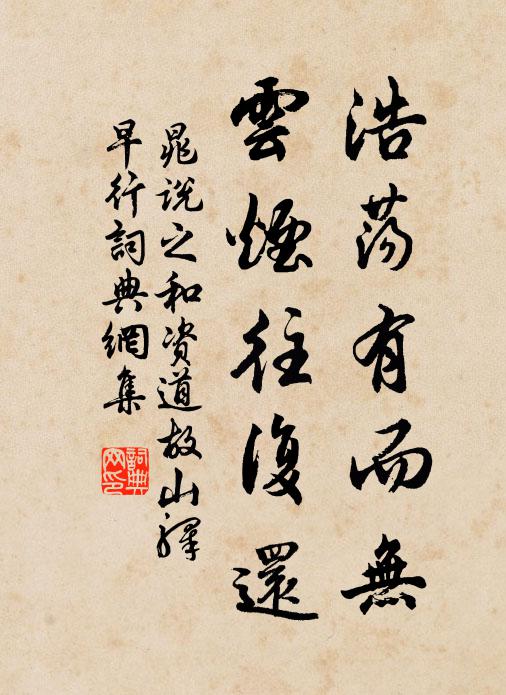 浩蕩有而無
雲煙往復還
晁說之和資道故山驛
早行詞典網集
詞典网印